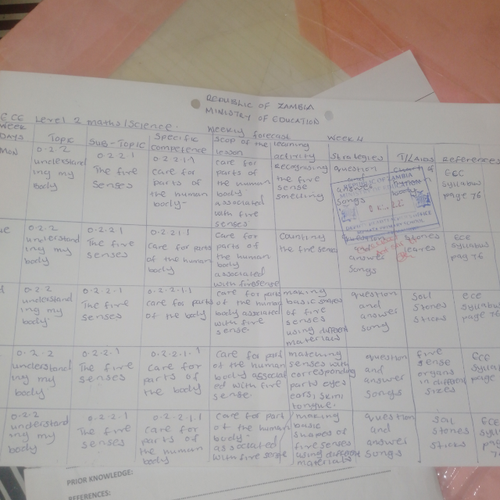 REPUBLIC OF ZAMBIA
MINISTRY OF EDUCATION
ECE Level 2 maths/Science
Weekly forecast Week 4
WEEK
DAYS
Topic
SUB-TOPIC
Specific
competence
Scope of the
lesson
learning
activity
Strategies
T/L Aids
References
0.2.2
understand
ing my
body
0.2.2.1
The five
senses
0.2.2.1.1
Care for
parts of
the human
body
care for
parts of
the human
body
associated
with five
senses
Recognising
the five
sense
smelling
question
and
answer
songs
ECE
Syllabus
page 76
0.2.2
understand
ing my
body
0.2.2.1
The five
senses
0.2.2.1.1
care for parts
of the human
body
care for
parts of
the human
body
associated
with five sense
Counting
the five senses
questions
answer
songs
stones
leaves
ECE
Syllabus
page 76
0.2.2
understand
ing my
body
0.2.2.1
The five
senses
0.2.2.1.1
care for parts
of the body
care for parts
of the human
body associated
with five
sense
making
basic
of five
senses
using different
materials
question
and
answer
song
Soil
Stones
Sticks
ECE
Syllabus
page 76
0.2.2
understand
ing my
body
0.2.2.1
The five
senses
0.2.2.1.1
Care for
parts of the
body
Care for part
of the human
body
ed with five
sense
matching
senses with
corresponding
parts eyes
ears, skin
tongue
question
and
answer
songs
five
sense
organs
in different
sizes
ECE
Syllabus
page
0.2.2
understand
ing my
body
0.2.2.1
The five
senses
0.2.2.1.1
Care for
parts of
the human
body
Care for part
of the human
body
associated
with five sense
making
basic
shapes of
five senses
using different
materials
question
and
answer
songs
Soil
stones
sticks
ECE
Syllabus
page
76
PRIOR KNOWLEDGE:
REFERENCES: